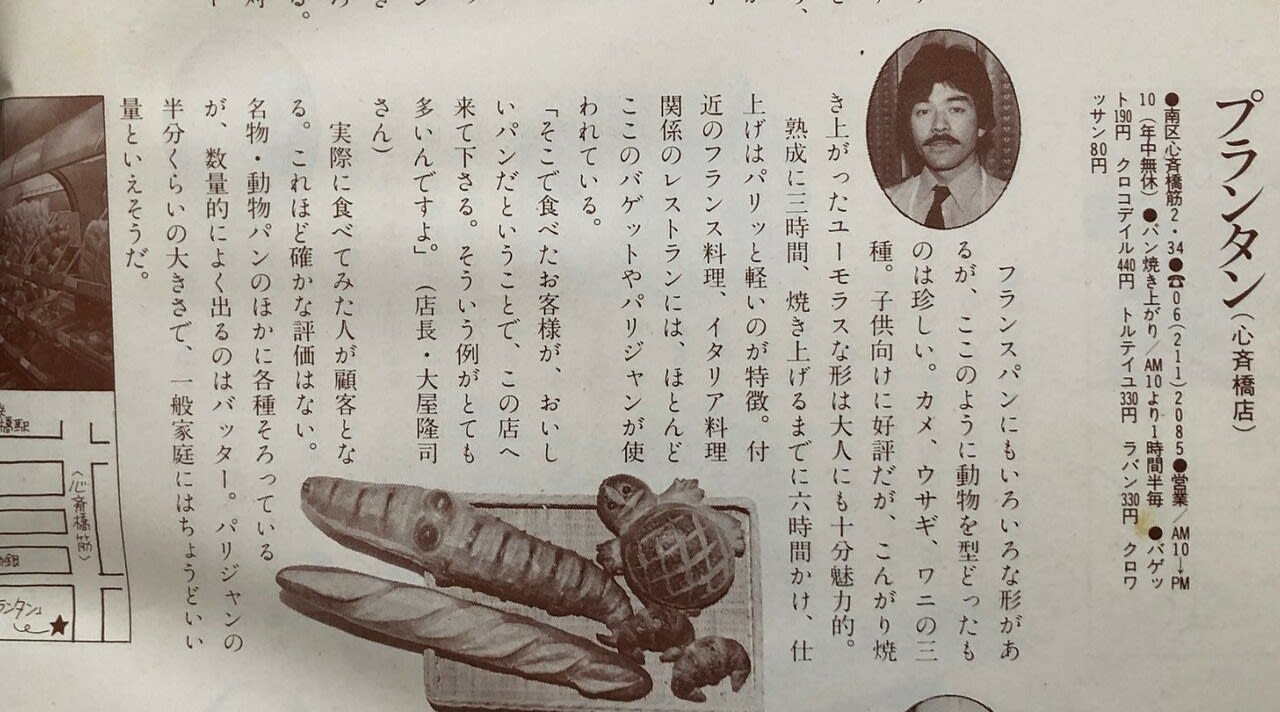 プランタン（心斉橋店）
●南区心斉橋筋2・34●☎06(211)2085●営業／AM10→PM
10（年中無休）●パン焼き上がり／AM10より1時間半毎　●バゲッ
ト190円　クロコデイル440円　トルテイユ330円　ラパン330円　クロワ
ッサン80円
フランスパンにもいろいろな形があ
るが、ここのように動物を型どったも
のは珍しい。カメ、ウサギ、ワニの三
種。子供向けに好評だが、こんがり焼
き上がったユーモラスな形は大人にも十分魅力的。
熟成に三時間、焼き上げるまでに六時間かけ、仕
上げはパリッと軽いのが特徴。付
近のフランス料理、イタリア料理
関係のレストランには、ほとんど
ここのバゲットやパリジャンが使
われている。
「そこで食べたお客様が、おいし
いパンだということで、この店へ
来て下さる。そういう例がとても
多いんですよ。」（店長・大屋隆司
さん）
実際に食べてみた人が顧客とな
る。これほど確かな評価はない。
名物・動物パンのほかに各種そろっている
が、数量的によく出るのはバッター。パリジャンの
半分くらいの大きさで、一般家庭にはちょうどいい
量といえそうだ。
（心斉橋筋）
橋駅
ランタン